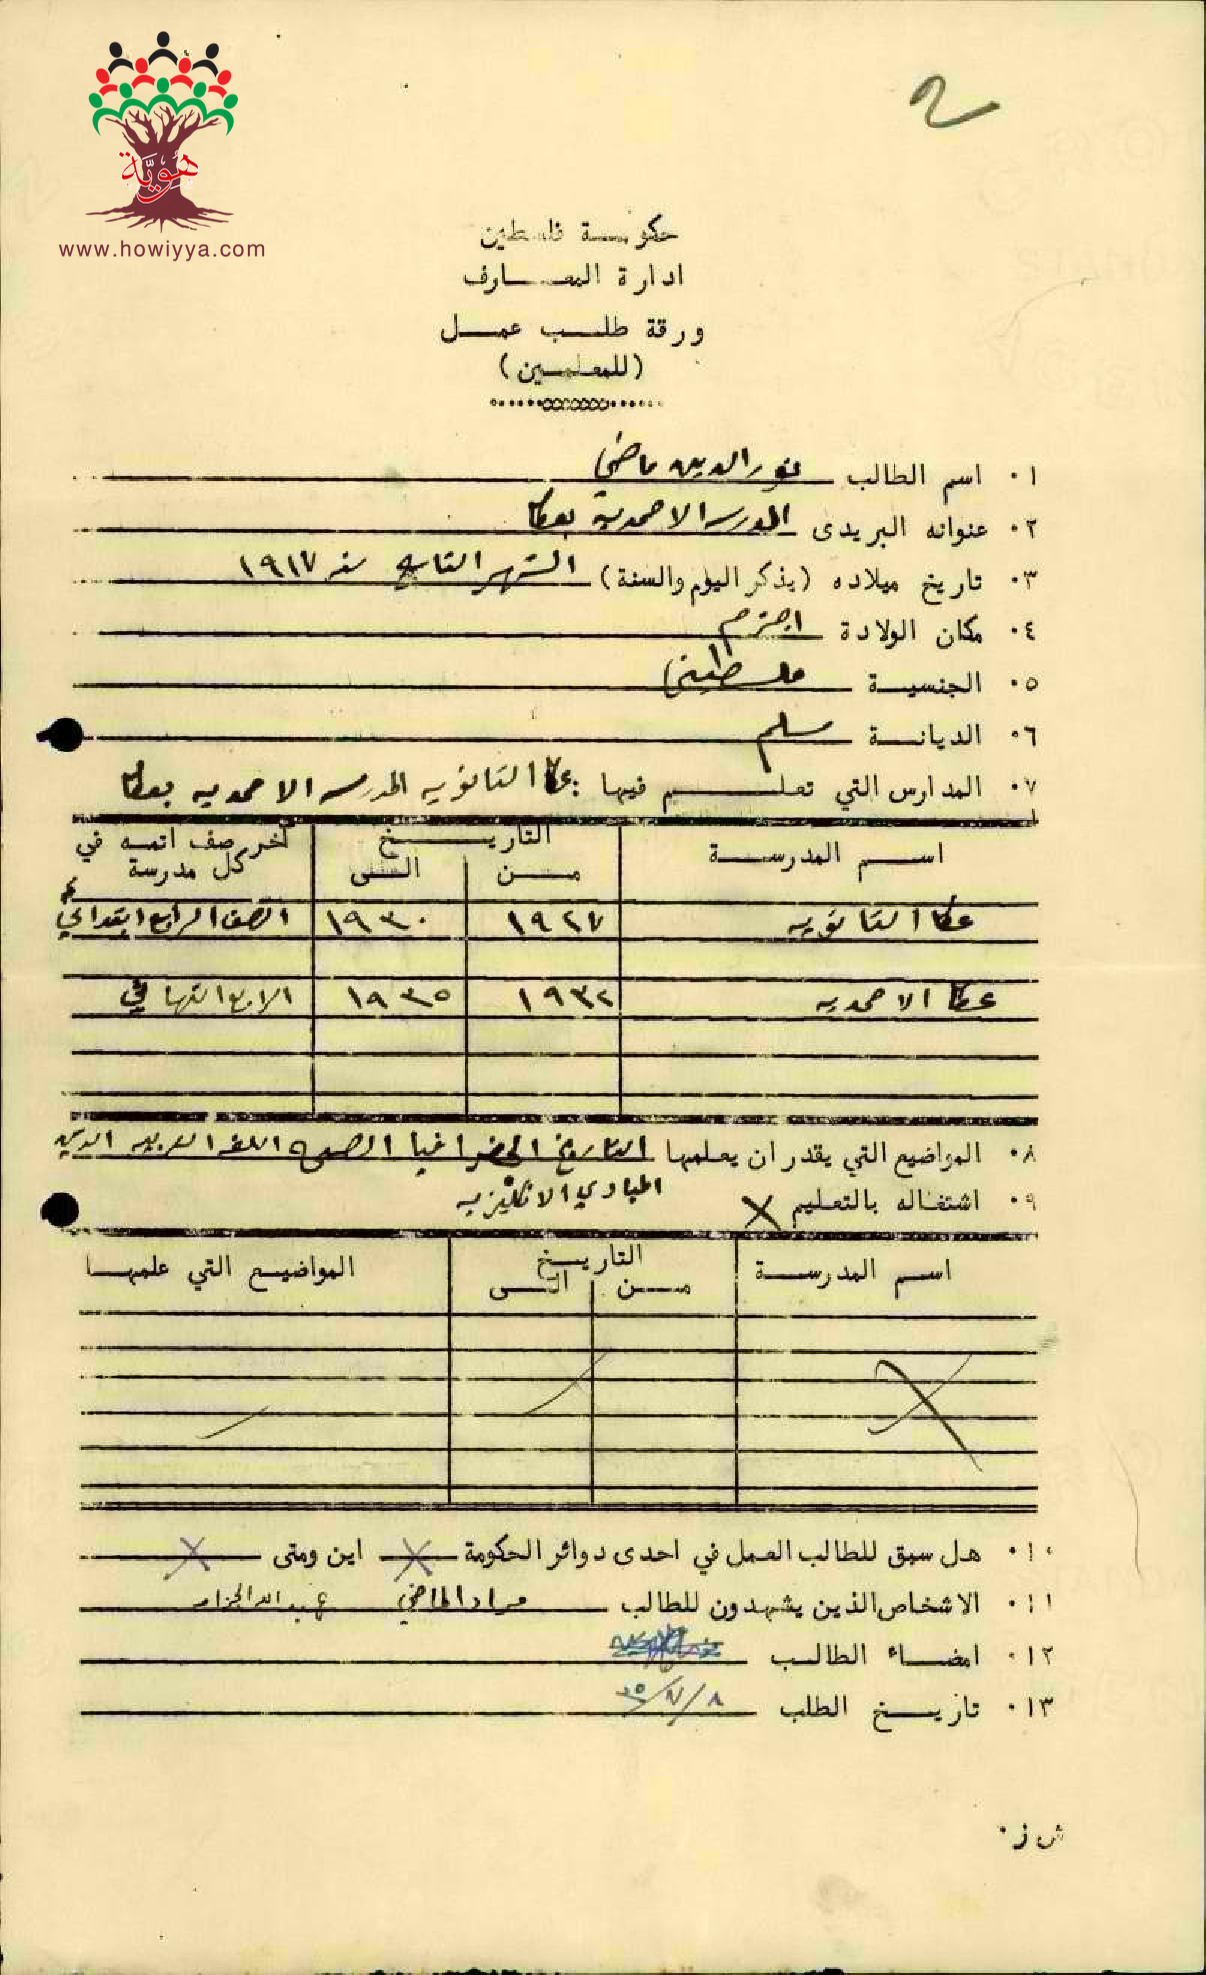 هوية
www.howiyya.com
٢
حكومة فلسطين
ادارة المعارف
ورقة طلب عمل
(للمعلمين)
١٠ اسم الطالب نور الدين ماضي
٢٠ عنوانه البريدى المدرسه الاحمدية بعكا
٣٠ تاريخ ميلاده (يذكر اليوم والسنة) الشهر التاسع سنه ١٩١٧
٤٠ مكان الولادة اجزم
٥٠ الجنسية فلسطيني
٦٠ الديانة مسلم
٧٠ المدارس التي تعلم فيها : عكا الثانويه المدرسه الاحمديه بعكا
اسم المدرسة التاريخ آخر صف اتمه في كل مدرسة
من الى
عكا الثانويه ١٩٢٧ ١٩٣٠ الصف الرابع ابتدائي
عكا الاحمديه ١٩٣٢ ١٩٣٥ الرابع النهائي
٨٠ المواضيع التي يقدر ان يعلمها التاريخ الجغرافيا الصحه اللغه العربيه الدين
المبادئ الانكليزيه
٩٠ اشتغاله بالتعليم X
اسم المدرسة التاريخ المواضيع التي علمها
من الى
١٠٠ هل سبق للطالب العمل في احدى دوائر الحكومة X اين ومتى X
١١٠ الاشخاص الذين يشهدون للطالب مراد الماضي عبد الله الجزار
١٢٠ امضاء الطالب
١٣٠ تاريخ الطلب ٨/٧/٣٥
ش ز٠